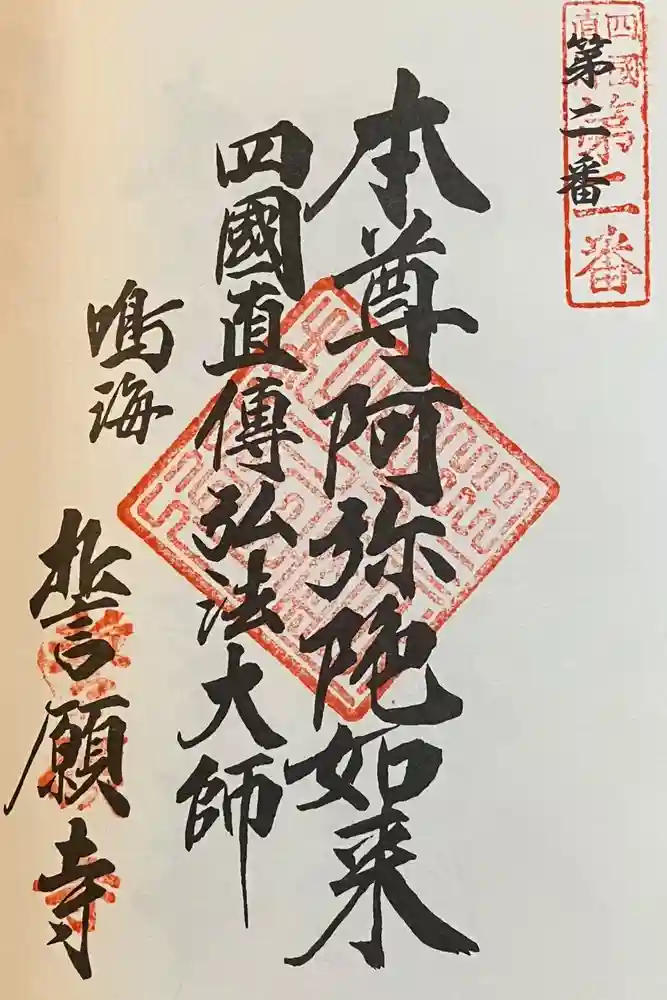 四國直
第二番
第二番
本尊阿弥陀如来
四國直傳弘法大師
鳴海
誓願寺